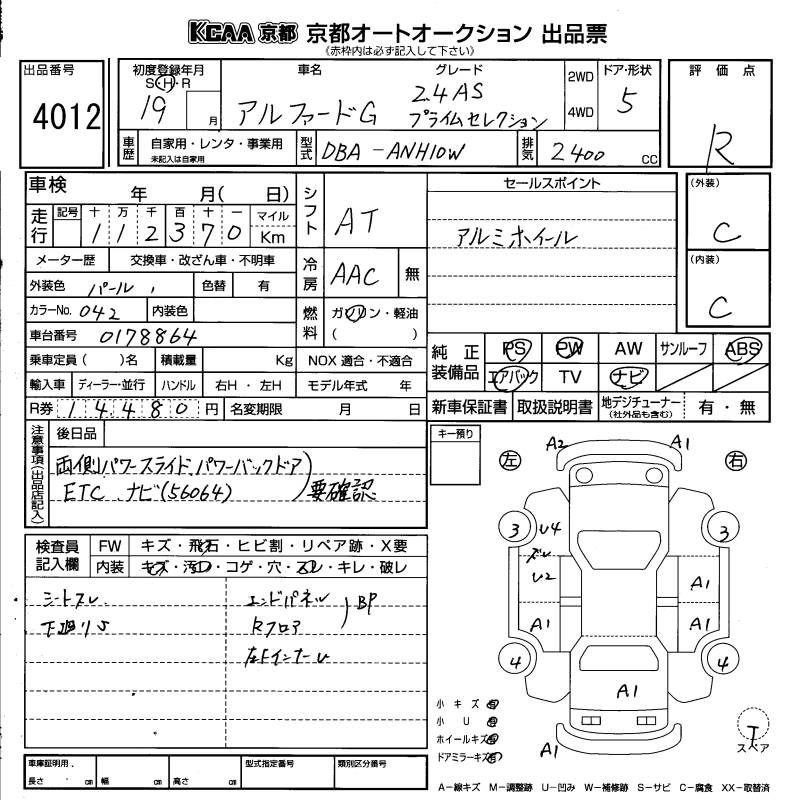 KCAA 京都 京都オートオークション 出品票
(赤枠内は必ず記入して下さい)
出品番号
4012
初度登録年月
S・H・R
19 月
車名
アルファードG
グレード
2.4AS
プライムセレクション
2WD
4WD
ドア・形状
5
評価点
R
車歴
自家用・レンタ・事業用
未記入は自家用
型式
DBA-ANH10W
排気
2400 CC
車検 年 月( 日)
走行
記号 十 万 千 百 十 一 マイル
1 1 2 3 7 0 Km
シフト
AT
セールスポイント
アルミホイール
(外装)
C
(内装)
C
メーター歴 交換車・改ざん車・不明車
外装色 パール 色替 有
冷房
AAC 無
カラーNo. 042 内装色
燃料
ガソリン・軽油
( )
車台番号 0178864
乗車定員( )名 積載量 Kg NOX 適合・不適合
輸入車 ディーラー・並行 ハンドル 右H・左H モデル年式 年
R券 14480 円 名変期限 月 日
純正装備品
PS PW AW サンルーフ ABS
エアバック TV ナビ
新車保証書 取扱説明書 地デジチューナー(社外品も含む) 有・無
注意事項(出品店記入)
後日品
両側パワースライド、パワーバックドア
ETC ナビ(56064) 要確認
キー預り
左 右
A2 A1
3 U4 3
ズレ
U2 A1
A1 A1
4 4
A1
A1
検査員記入欄
FW キズ・飛石・ヒビ割・リペア跡・X要
内装 キズ・汚レ・コゲ・穴・スレ・キレ・破レ
シートスレ
下廻りS
エンドパネル
Rフロア
BP
左FインナーU
小キズ有
小U有
ホイールキズ有
ドアミラーキズ有
T
スペア
車庫証明用.
長さ cm 幅 cm 高さ cm
型式指定番号
類別区分番号
A-線キズ M-調整跡 U-凹み W-補修跡 S-サビ C-腐食 XX-取替済